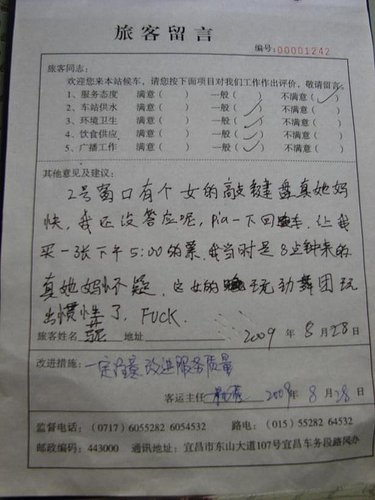 旅客留言
编号:00001242
旅客同志：
欢迎您来本站候车，请您按下面项目对我们工作作出评价，敬请留言：
1、服务态度 满意（ ） 一般（ ） 不满意（✓）
2、车站供水 满意（ ） 一般（✓） 不满意（ ）
3、环境卫生 满意（ ） 一般（✓） 不满意（ ）
4、饮食供应 满意（ ） 一般（✓） 不满意（ ）
5、广播工作 满意（ ） 一般（✓） 不满意（ ）
其他意见及建议：
2号窗口有个女的敲键盘真她妈
快，我还没答应呢，Pia一下回车，让我
买一张下午5:00的票，我当时是8点钟来的
真她妈怀疑，这女的玩劲舞团玩
出惯性了，FUCK.
旅客姓名 地址 2009 年 8 月 28 日
改进措施：一定注意改进服务质量
客运主任 2009 年 8 月 28 日
监督电话：（0717）6055282 6054532 路电：（015）55282 64532
邮政编码：443000 通讯地址：宜昌市东山大道107号宜昌车务段路风办